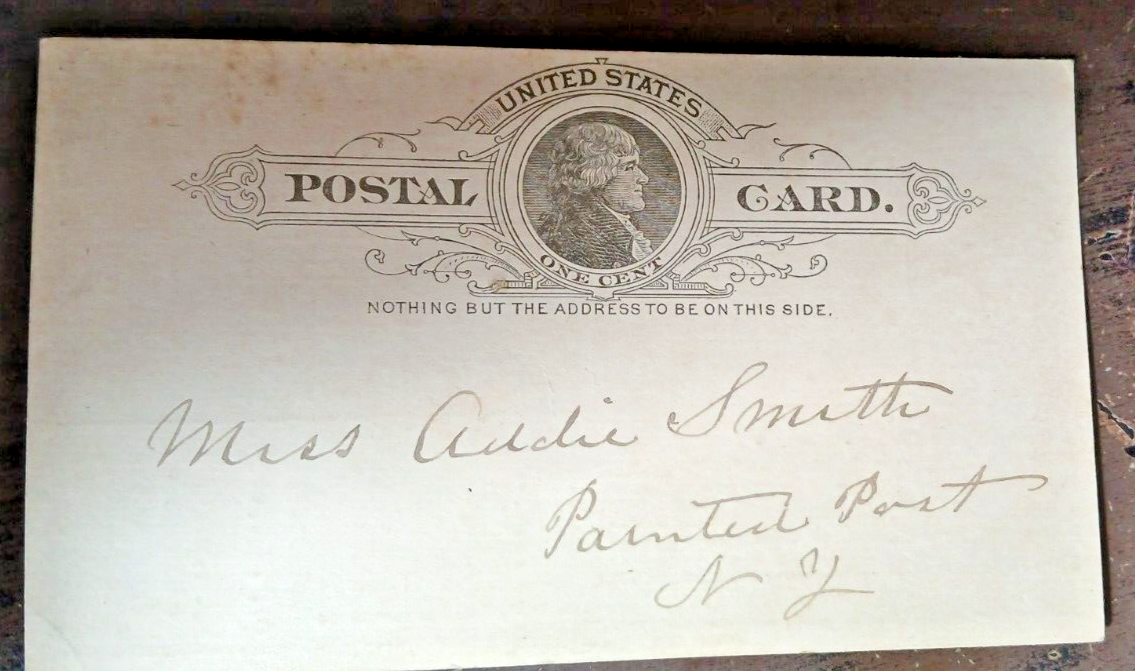 UNITED STATES
POSTAL CARD.
ONE CENT
NOTHING BUT THE ADDRESS TO BE ON THIS SIDE.
Miss Addie Smith
Painted Post
N Y